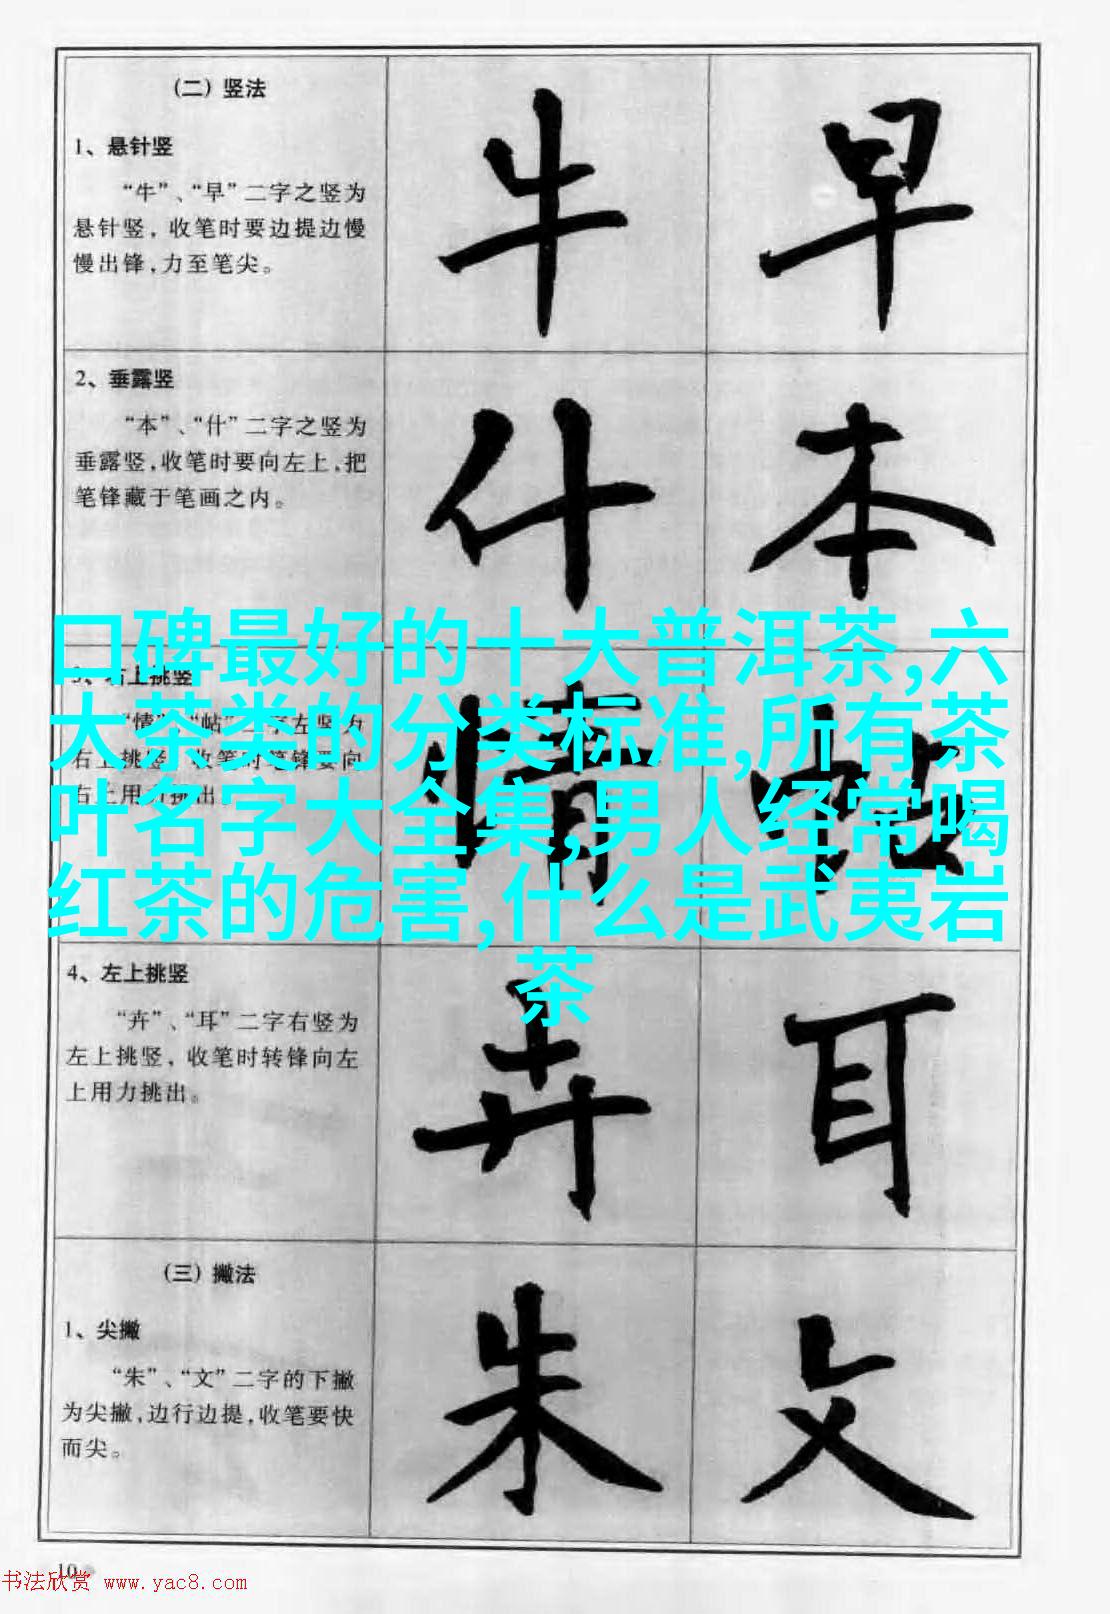 (二) 竖法
1、悬针竖
“牛”、“早”二字之竖为
悬针竖，收笔时要边提边慢
慢出锋，力至笔尖。
牛
早
2、垂露竖
“本”、“什”二字之竖为
垂露竖，收笔时要向左上，把
笔锋藏于笔画之内。
什
本
口碑最好的十大普洱茶,六
大茶类的分类标准,所有茶
叶名字大全集,男人经常喝
红茶的危害,什么是武夷岩
茶
情
4、左上挑竖
“卉”、“耳”二字右竖为
左上挑竖，收笔时转锋向左
上用力挑出。
卉
耳
(三) 撇法
1、尖撇
“朱”、“文”二字的下撇
为尖撇，边行边提，收笔要快
而尖。
朱
文
10
书法欣赏 www.yac8.com